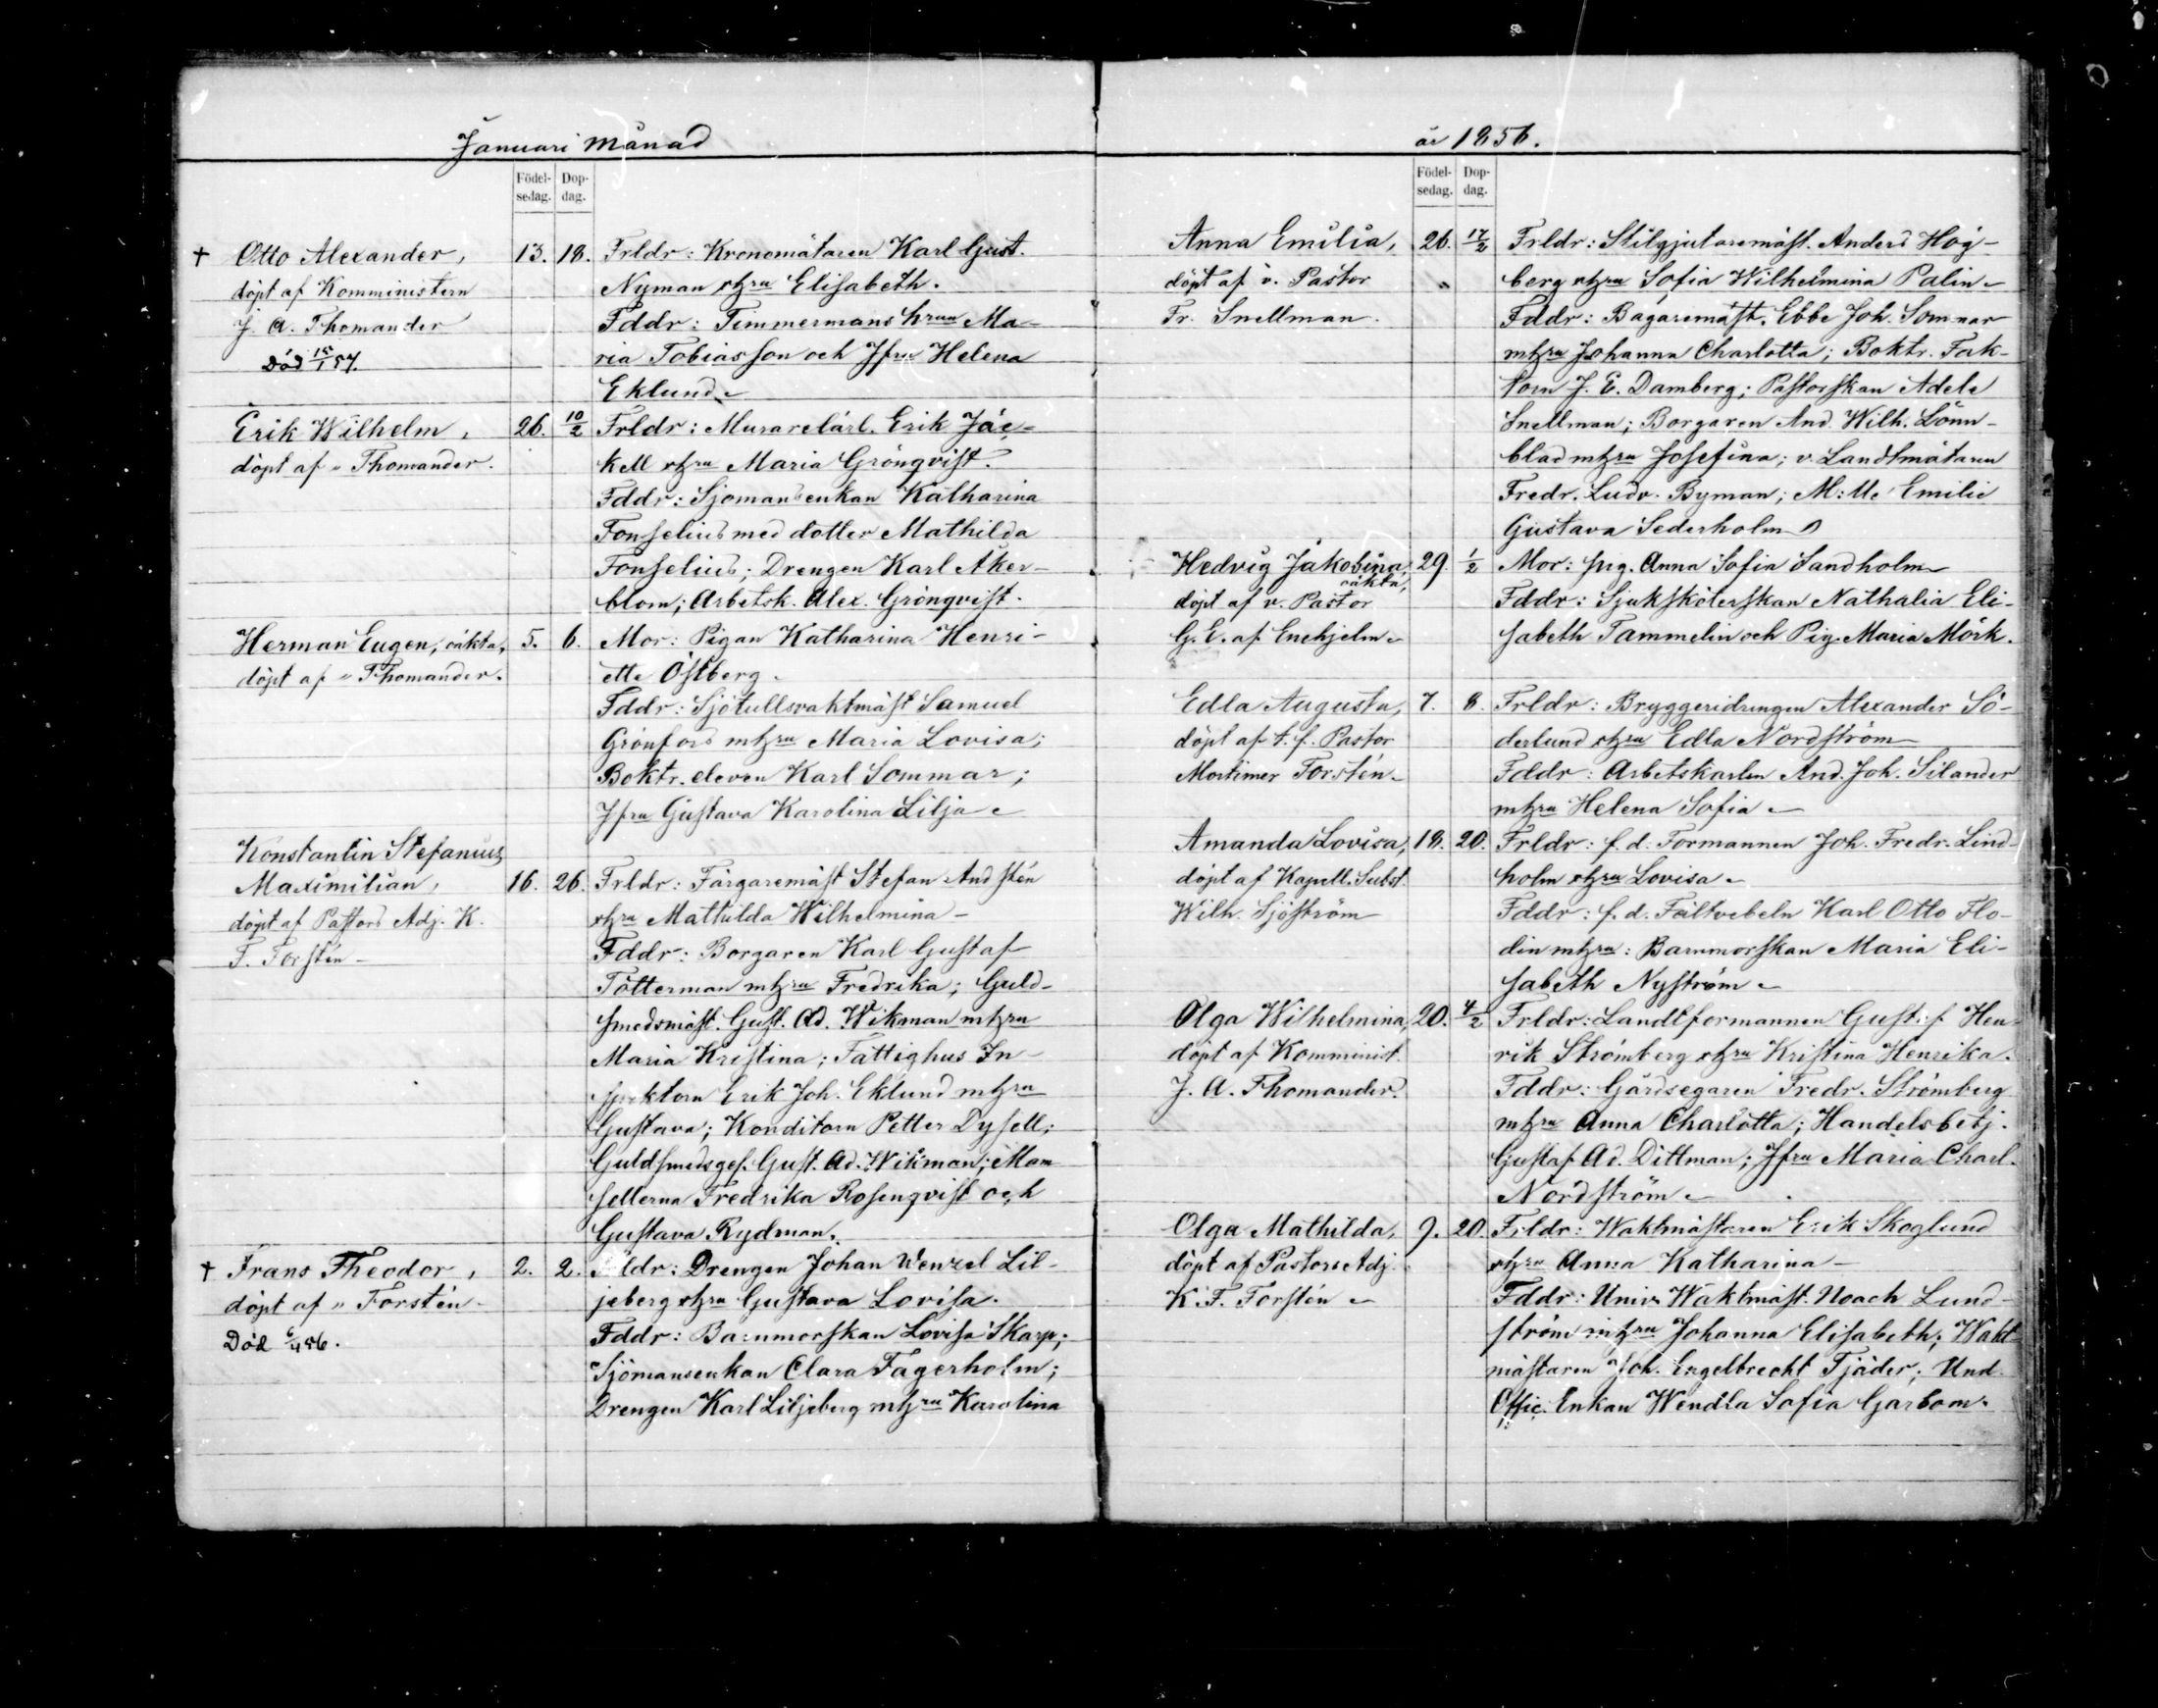 Januari månad
Födel- Dop-
sedag. dag.
† Otto Alexander, 13. 18. Frldr: Kronomätaren Karl Gust.
döpt af Komministern Nyman o hru Elisabeth.
J. A. Thomander Fddr: Timmermans hrun Ma-
Död 15/1 57. ria Tobiasson och Jfru Helena
Eklund.
Erik Wilhelm, 26. 10/2 Frldr: Murarelärl. Erik Jäc-
döpt af " Thomander. kell o hru Maria Grönqvist.
Fddr: Sjömansenkan Katharina
Fonselius med dotter Mathilda
Fonselius; Drengen Karl Åker-
blom; Arbetsk. Alex. Grönqvist.
Herman Eugen, oäkta, 5. 6. Mor: Pigan Katharina Henri-
döpt af " Thomander. ette Östberg.
Fddr: Sjötullsvaktmäst Samuel
Grönfors m hru Maria Lovisa;
Boktr. eleven Karl Sommar;
Jfru Gustava Karolina Lilja
Konstantin Stefanus
Maximilian, 16. 26. Frldr: Färgaremäst Stefan Andstén
döpt af Pastors Adj. K. o hru Mathilda Wilhelmina -
F. Forstén - Fddr: Borgaren Karl Gustaf
Tötterman m hru Fredrika; Guld-
smedsmäst. Gust. Ad. Wikman m hru
Maria Kristina; Fattighus In-
spektorn Erik Joh. Eklund m hru
Gustava; Konditorn Petter Dysell;
Guldsmedsges. Gust. Ad. Wikman; Mam
sellerna Fredrika Rosenqvist och
Gustava Rydman.
† Frans Theodor, 2. 2. Frldr: Drengen Johan Wenzel Lil-
döpt af " Forstén - jeberg o hru Gustava Lovisa.
Död 6/4 56. Fddr: Barnmorskan Lovisa Skarp;
Sjömansenkan Clara Fagerholm;
Drengen Karl Liljeberg m hru Karolina
år 1856.
Födel- Dop-
sedag. dag.
Anna Emilia, 26. 17/2 Frldr: Stilgjutaremäst. Anders Hög-
döpt af v. Pastor berg o hru Sofia Wilhelmina Palin
Fr. Snellman. Fddr: Bagaremäst. Ebbe Joh. Sommar
m hru Johanna Charlotta; Boktr. Fak-
torn J. E. Damberg; Pastorskan Adele
Snellman; Borgaren And. Wilh. Lönn-
blad m hru Josefina; v. Landtmätaren
Fredr. Ludv. Byman; M:lle Emilie
Gustava Sederholm
Hedvig Jakobina, 29. 1/2 Mor: pig. Anna Sofia Sandholm
oäkta,
döpt af v. Pastor Fddr: Sjuksköterskan Nathalia Eli-
G. E. af Enehjelm sabeth Tammelin och Pig. Maria Mörk.
Edla Augusta, 7. 8. Frldr: Bryggeridrengen Alexander Sö-
döpt af t. f. Pastor derlund o hru Edla Nordström
Mortimer Forstén Fddr: Arbetskarlen And. Joh. Silander
m hru Helena Sofia
Amanda Lovisa, 18. 20. Frldr: f. d. Formannen Joh. Fredr. Lind-
döpt af Kapell. Subst. holm o hru Lovisa
Wilh. Sjöström Fddr: f. d. Fältvebeln Karl Otto Flo-
din m hru: Barnmorskan Maria Eli-
sabeth Nyström
Olga Wilhelmina, 20. 4/2 Frldr: Landtformannen Gust:f Hen-
döpt af Komminist. rik Strömberg o hru Kristina Henrika.
J. A. Thomander. Fddr: Gårdsegaren Fredr. Strömberg
m hru Anna Charlotta; Handelsbetj.
Gustaf Ad. Dittman; Jfru Maria Charl.
Nordström
Olga Mathilda, 9. 20. Frldr: Waktmästaren Erik Skoglund
döpt af Pastors Adj. o hru Anna Katharina -
K. F. Forstén Fddr: Univ. Waktmäst. Noach Lund-
ström m hru Johanna Elisabeth; Wakt
mästaren Joh. Engelbrecht Tjäder; Und.
Offic. Enkan Wendla Sofia Garbom.